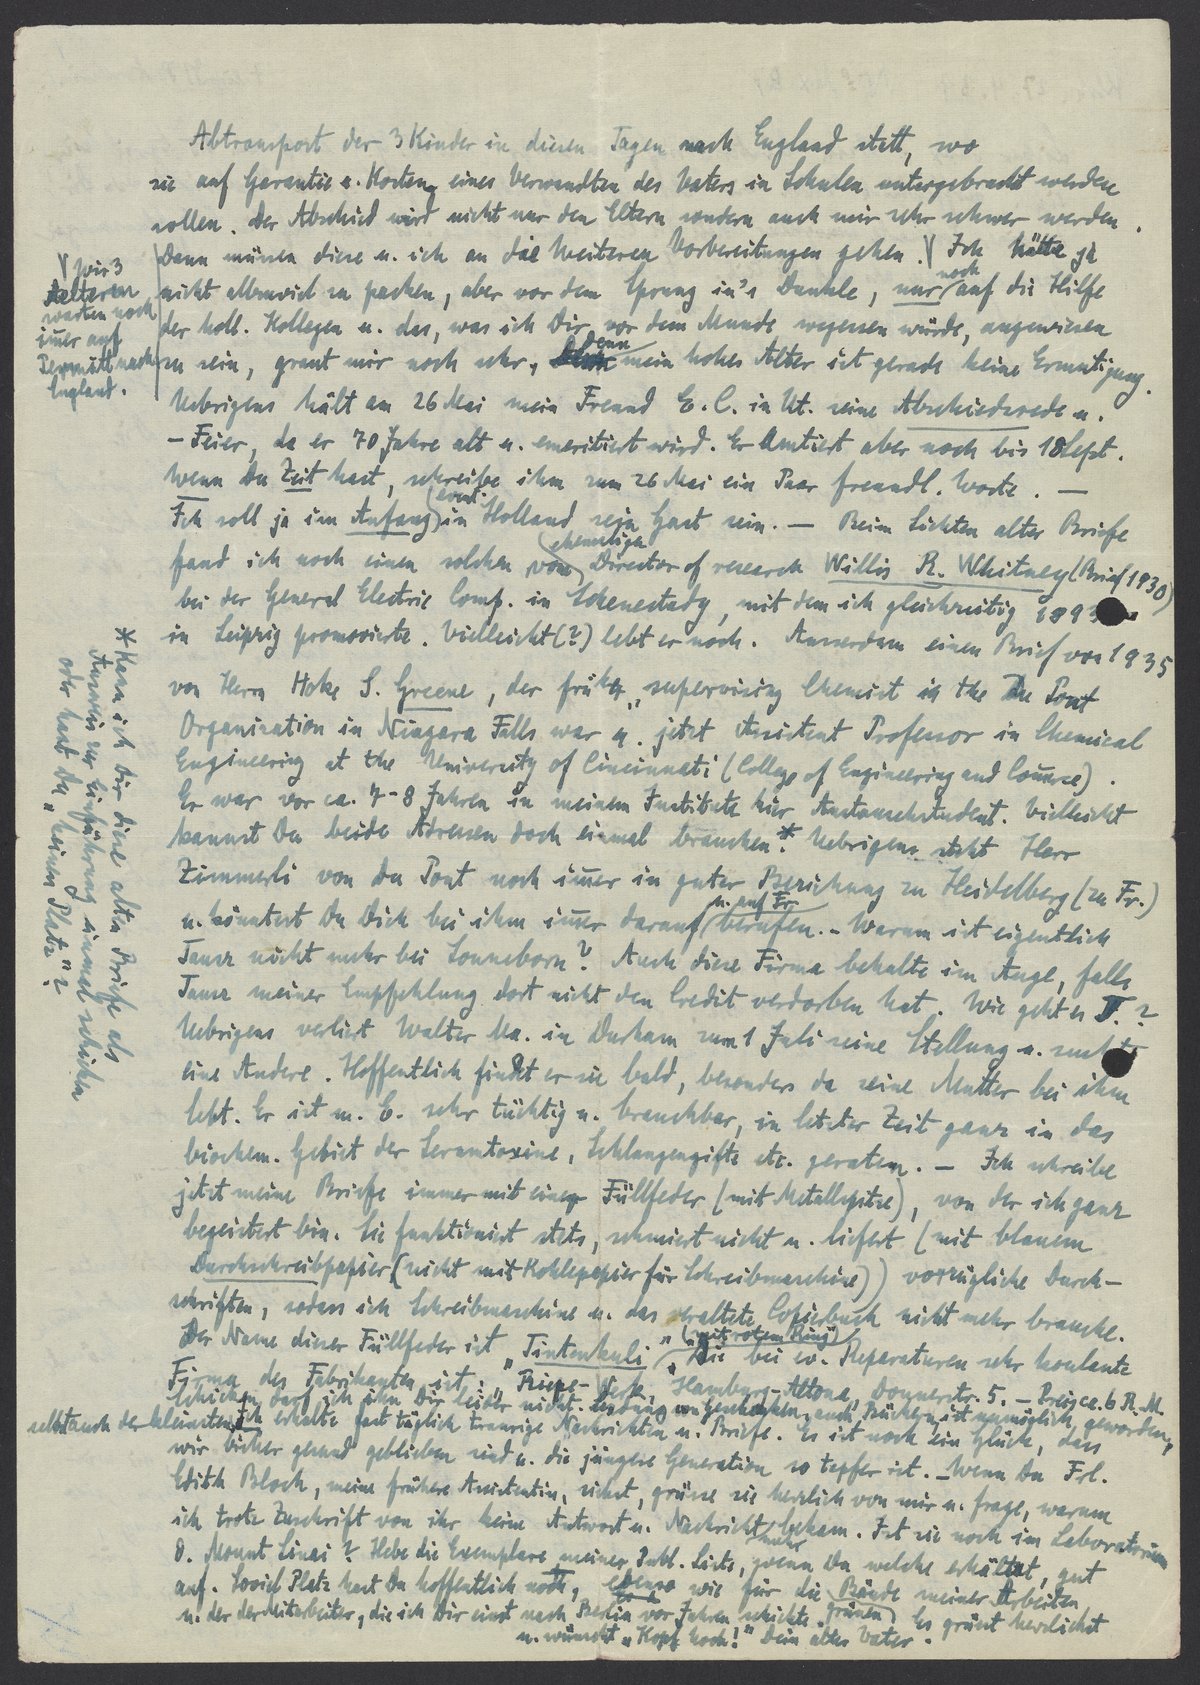 Abtransport der 3 Kinder in diesen Tagen nach England statt, wo
sie auf Garantie u. Kosten eines Verwandten des Vaters in Schulen untergebracht werden
sollen. Der Abschied wird nicht nur den Eltern sondern auch mir sehr schwer werden.
Dann müssen diese u. ich an die weiteren Vorbereitungen gehen. Ich hätte ja
Wir 3
Aelteren
warten noch
im̄er auf
Permitt nach
England.
nicht allzuviel zu packen, aber vor dem Sprung in's Dunkle, nur noch auf die Hilfe
der holl. Kollegen u. das, was ich Dir vor dem Munde wegessen würde, angewiesen
zu sein, graut mir noch sehr, denn mein hohes Alter ist gerade keine Ermutigung.
Uebrigens hält am 26 Mai mein Freund E. C. in Ut. seine Abschiedsrede u.
- Feier, da er 70 Jahre alt u. emeritiert wird. Er amtiert aber noch bis 18 Sept.
Wenn Du Zeit hast, schreibe ihm zum 26 Mai ein Paar freundl. Worte. —
Ich soll ja im Anfang (event.) in Holland sein Gast sein. — Beim Sichten alter Briefe
fand ich noch einen solchen vom ehemaligen Director of research Willis R. Whitney (Brief 1930)
bei der General Electric Comp. in Schenectady, mit dem ich gleichzeitig 1893
in Leipzig promovierte. Vielleicht (?) lebt er noch. Ausserdem einen Brief von 1935
von Herrn Hoke S. Greene, der früher „supervising Chemist in the Du Pont
Organization in Niagara Falls war u. jetzt Assistent Professor in Chemical
Engineering at the University of Cincinnati (College of Engineering and Comerce).
Er war vor ca. 7-8 Jahren in meinem Institute hier Austauschstudent. Vielleicht
kannst Du beide Adressen doch einmal brauchen?* Uebrigens steht Herr
Zimmerli von Du Pont noch im̄er in guter Beziehung zu Heidelberg (zu Fr.)
u. könntest Du Dich bei ihm im̄er darauf u. auf Fr. berufen. - Warum ist eigentlich
Tausz nicht mehr bei Sonneborn? Auch diese Firma behalte im Auge, falls
Tausz meiner Empfehlung dort nicht den Credit verdorben hat. Wie geht es T.?
Uebrigens verliert Walter Ma. in Durham zum 1 Juli seine Stellung u. sucht
eine Andere. Hoffentlich findet er sie bald, besonders da seine Mutter bei ihm
lebt. Er ist m. E. sehr tüchtig u. brauchbar, in letzter Zeit ganz in das
biochem. Gebiet der Serumtoxine, Schlangengifte etc. geraten. — Ich schreibe
jetzt meine Briefe immer mit einer Füllfeder (mit Metallspitze), von der ich ganz
begeistert bin. Sie funktioniert stets, schmiert nicht u. liefert (mit blauem
Durchschreibpapier (nicht mit Kohlepapier für Schreibmaschine)) vorzügliche Durch-
schriften, sodass ich Schreibmaschine u. das veraltete Copierbuch nicht mehr brauche.
Der Name dieser Füllfeder ist „Tintenkuli" (mit rotem Ring). Die bei ev. Reparaturen sehr koulante
Firma des Fabrikanten ist: „Riepe-Werk, Hamburg-Altona, Donnerstr. 5. — Preis ca. 6 R.M.
Schicken darf ich ihn Dir leider nicht. Sendung von Geschenken, auch Büchern ist unmöglich geworden,
selbst auch der kleinsten. Ich erhalte fast täglich traurige Nachrichten u. Briefe. Es ist noch ein Glück, dass
wir bisher gesund geblieben sind u. die jüngere Generation so tapfer ist. - Wenn Du Frl.
Edith Bloch, meine frühere Assistentin, siehst, grüsse sie herzlich von mir u. frage, warum
ich trotz Zuschrift von ihr keine Antwort u. Nachricht mehr bekam. Ist sie noch im Laboratorium
d. Mount Sinai? Hebe die Exemplare meiner Publ. Liste, wenn Du welche erhältst, gut
auf. Soviel Platz hast Du hoffentlich noch, ebenso wie für die grünen Bände meiner Arbeiten
u. der der Mitarbeiter, die ich Dir einst nach Berlin vor Jahren schickte. Es grüsst herzlichst
u. wünscht „Kopf hoch!" Dein alter Vater.
* Kann ich Dir diese alten Briefe als
Ausweis zur Einführung einmal schicken
oder hast Du „keinen Platz"?